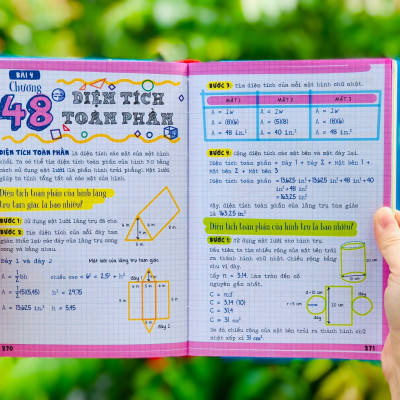 BÀI 4
Chương
48
DIỆN TÍCH
TOÀN PHẦN
DIỆN TÍCH TOÀN PHẦN là diện tích các mặt của một hình
khối. Ta có thể tìm diện tích toàn phần của hình 3D bằng
cách sử dụng mặt lưới (là phần hình trải phẳng). Mặt lưới
giúp ta tính tổng tất cả các mặt của hình.
Diện tích toàn phần của hình lăng
trụ tam giác là bao nhiêu?
BƯỚC 1: Sử dụng mặt lưới lăng trụ đã cho.
BƯỚC 2: Tìm diện tích của mỗi đáy tam
giác. Nhắc lại: các đáy của lăng trụ song
song và bằng nhau.
Đáy 1 và đáy 2
Mặt lưới của lăng trụ tam giác
A = 1/2 bh
chiều cao = 6² = 2,5² + h²
A = 1/2 (5)(5,45)
h² = 29,75
A = 13,625 in.²
h ≈ 5,45
đáy 2
270
BƯỚC 3: Tìm diện tích của mỗi mặt hình chữ nhật.
MẶT 1 MẶT 2 MẶT 3
A = lw A = lw A = lw
A = (8)(6) A = (5)(8) A = (8)(6)
A = 48 in.² A = 40 in.² A = 48 in.²
BƯỚC 4: Cộng diện tích các mặt bên và mặt đáy lại.
Diện tích toàn phần = Đáy 1 + Đáy 2 + Mặt bên 1 +
Mặt bên 2 + Mặt bên 3
Diện tích toàn phần = 13,625 in.² + 13,625 in.² + 48 in.² + 40
in.² + 48 in.²
= 163,25 in.²
Vậy, diện tích toàn phần của lăng trụ tam giác
là 163,25 in.²
Diện tích toàn phần của hình trụ là bao nhiêu?
BƯỚC 1: Sử dụng mặt lưới của hình trụ.
Đầu tiên ta tìm chiều rộng của mặt bên trải
ra thành hình chữ nhật. Chiều rộng bằng
chu vi đáy.
Lấy π ≈ 3,14. Làm tròn đến số
nguyên gần nhất.
C = πd
C = 3,14 (10)
C = 31,4
C ≈ 31 cm.
d = 10 cm
r = 5 cm
20 cm
đáy
Do đó chiều rộng của mặt bên trải ra thành hình chữ
nhật xấp xỉ 31 cm.
271